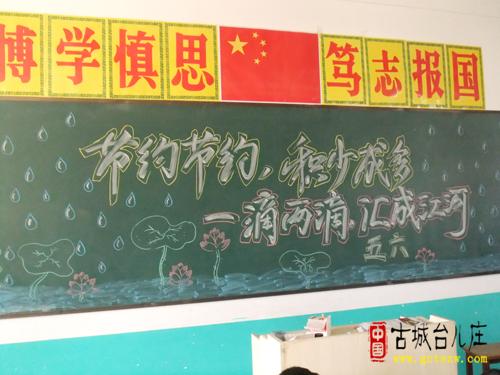 博学慎思 笃志报国
节约节约，积少成多
一滴两滴，汇成江河
五六
中国 古城台儿庄
www.gctezw.com